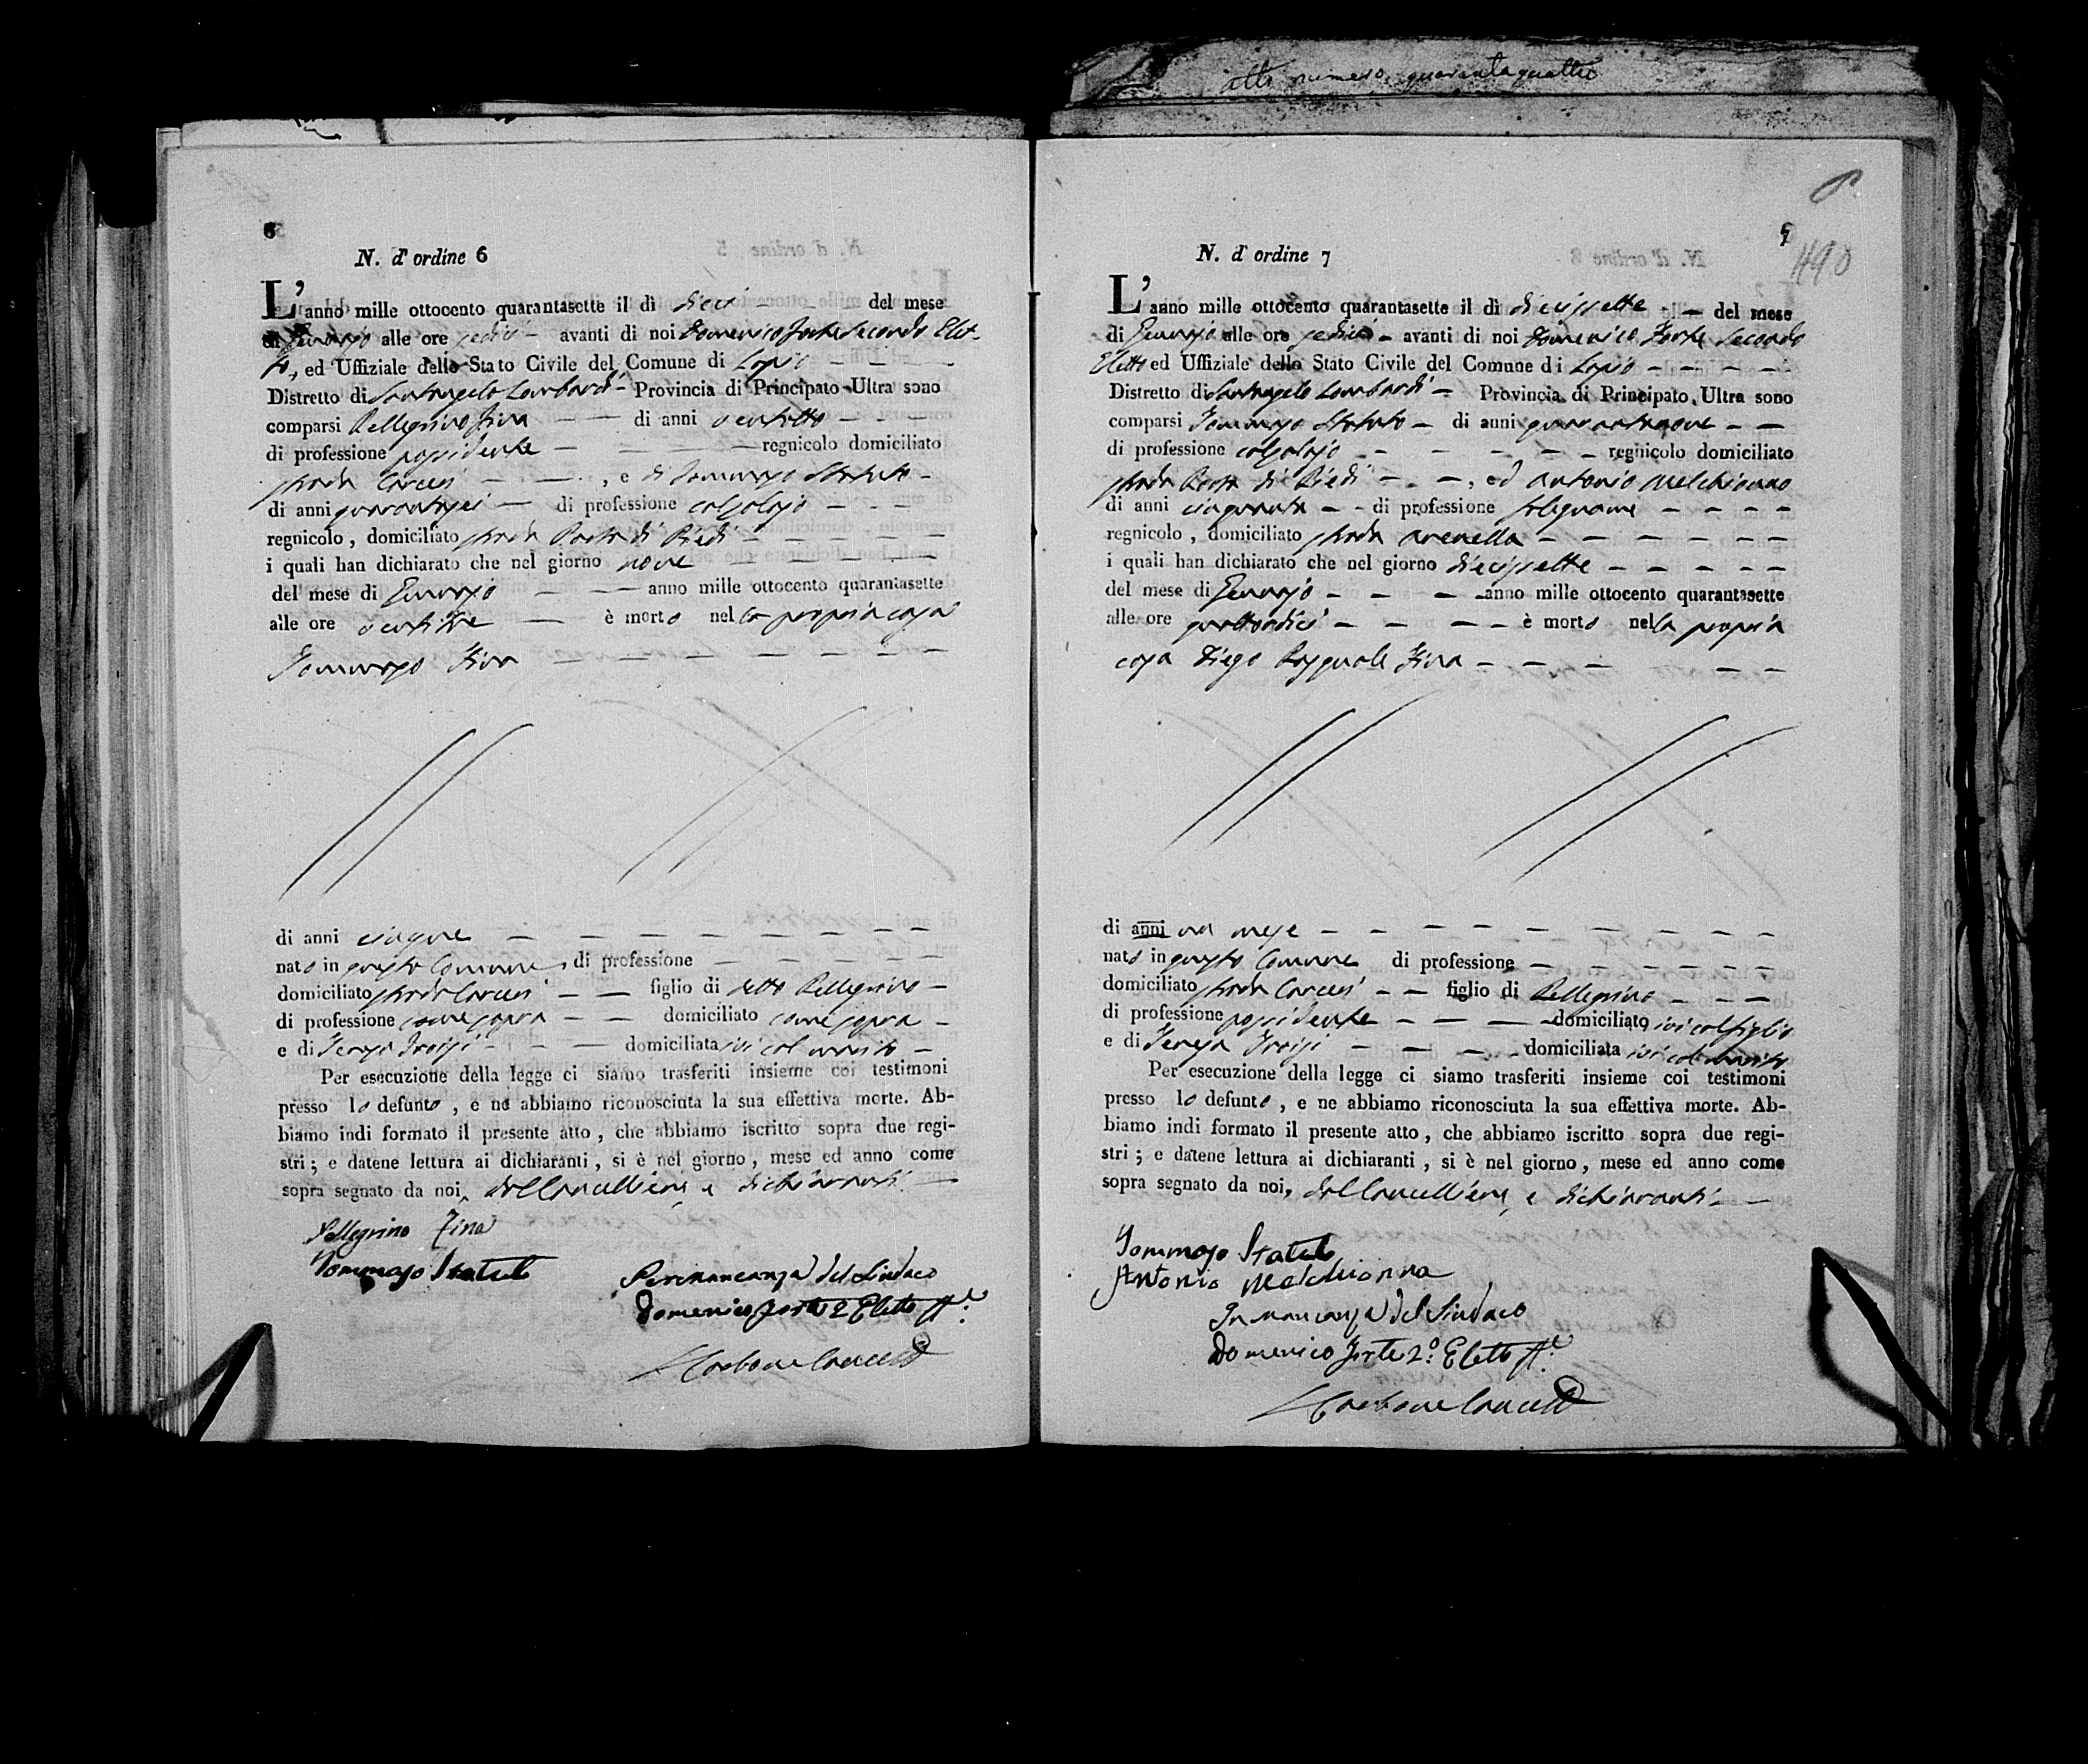 atto numero quarantaquattro
6
N. d' ordine 6
L' anno mille ottocento quarantasette il dì dieci del mese
di Gennajo alle ore sedici avanti di noi Domenico Forte Secondo Elet-
to, ed Uffiziale dello Stato Civile del Comune di Lapio
Distretto di Santangelo Lombardi Provincia di Principato Ultra sono
comparsi Pellegrino Zina di anni ventotto
di professione possidente regnicolo domiciliato
strada Carceri, e di Tommaso Statuto
di anni quarantasei di professione calzolajo
regnicolo, domiciliato strada Porta di Piedi
i quali han dichiarato che nel giorno nove
del mese di Gennajo anno mille ottocento quarantasette
alle ore ventitre è morto nella propria casa
Tommaso Zina
di anni cinque
nato in questo Comune, di professione
domiciliato strada Carceri figlio di detto Pellegrino
di professione come sopra domiciliato come sopra
e di Teresa Troisi domiciliata ivi col marito
Per esecuzione della legge ci siamo trasferiti insieme coi testimoni
presso lo defunto, e ne abbiamo riconosciuta la sua effettiva morte. Ab-
biamo indi formato il presente atto, che abbiamo iscritto sopra due regi-
stri; e datene lettura ai dichiaranti, si è nel giorno, mese ed anno come
sopra segnato da noi, dal Cancelliere, e dichiaranti
Pellegrino Zina
Tommaso Statuto
Per mancanza del Sindaco
Domenico Forte 2 Eletto
Carbone Cancell
7
490
N. d' ordine 7
L' anno mille ottocento quarantasette il dì diecissette del mese
di Gennajo alle ore sedici avanti di noi Domenico Forte Secondo
Eletto ed Uffiziale dello Stato Civile del Comune di Lapio
Distretto di Santangelo Lombardi Provincia di Principato Ultra sono
comparsi Tommaso Statuto di anni quarantanove
di professione calzolajo regnicolo domiciliato
strada Porta di Piedi, ed Antonio Melchionno
di anni cinquanta di professione falegname
regnicolo, domiciliato strada Arenella
i quali han dichiarato che nel giorno diecissette
del mese di Gennajo anno mille ottocento quarantasette
alle ore quattordici è morto nella propria
casa Diego Pasquale Zina
di anni un mese
nato in questo Comune di professione
domiciliato strada Carceri figlio di Pellegrino
di professione possidente domiciliato ivi col figlio
e di Teresa Troisi domiciliata ivi col marito
Per esecuzione della legge ci siamo trasferiti insieme coi testimoni
presso lo defunto, e ne abbiamo riconosciuta la sua effettiva morte. Ab-
biamo indi formato il presente atto, che abbiamo iscritto sopra due regi-
stri; e datene lettura ai dichiaranti, si è nel giorno, mese ed anno come
sopra segnato da noi, dal Cancelliere, e dichiaranti
Tommaso Statuto
Antonio Melchionna
In mancanza del Sindaco
Domenico Forte 2º Eletto
Carbone Cancell